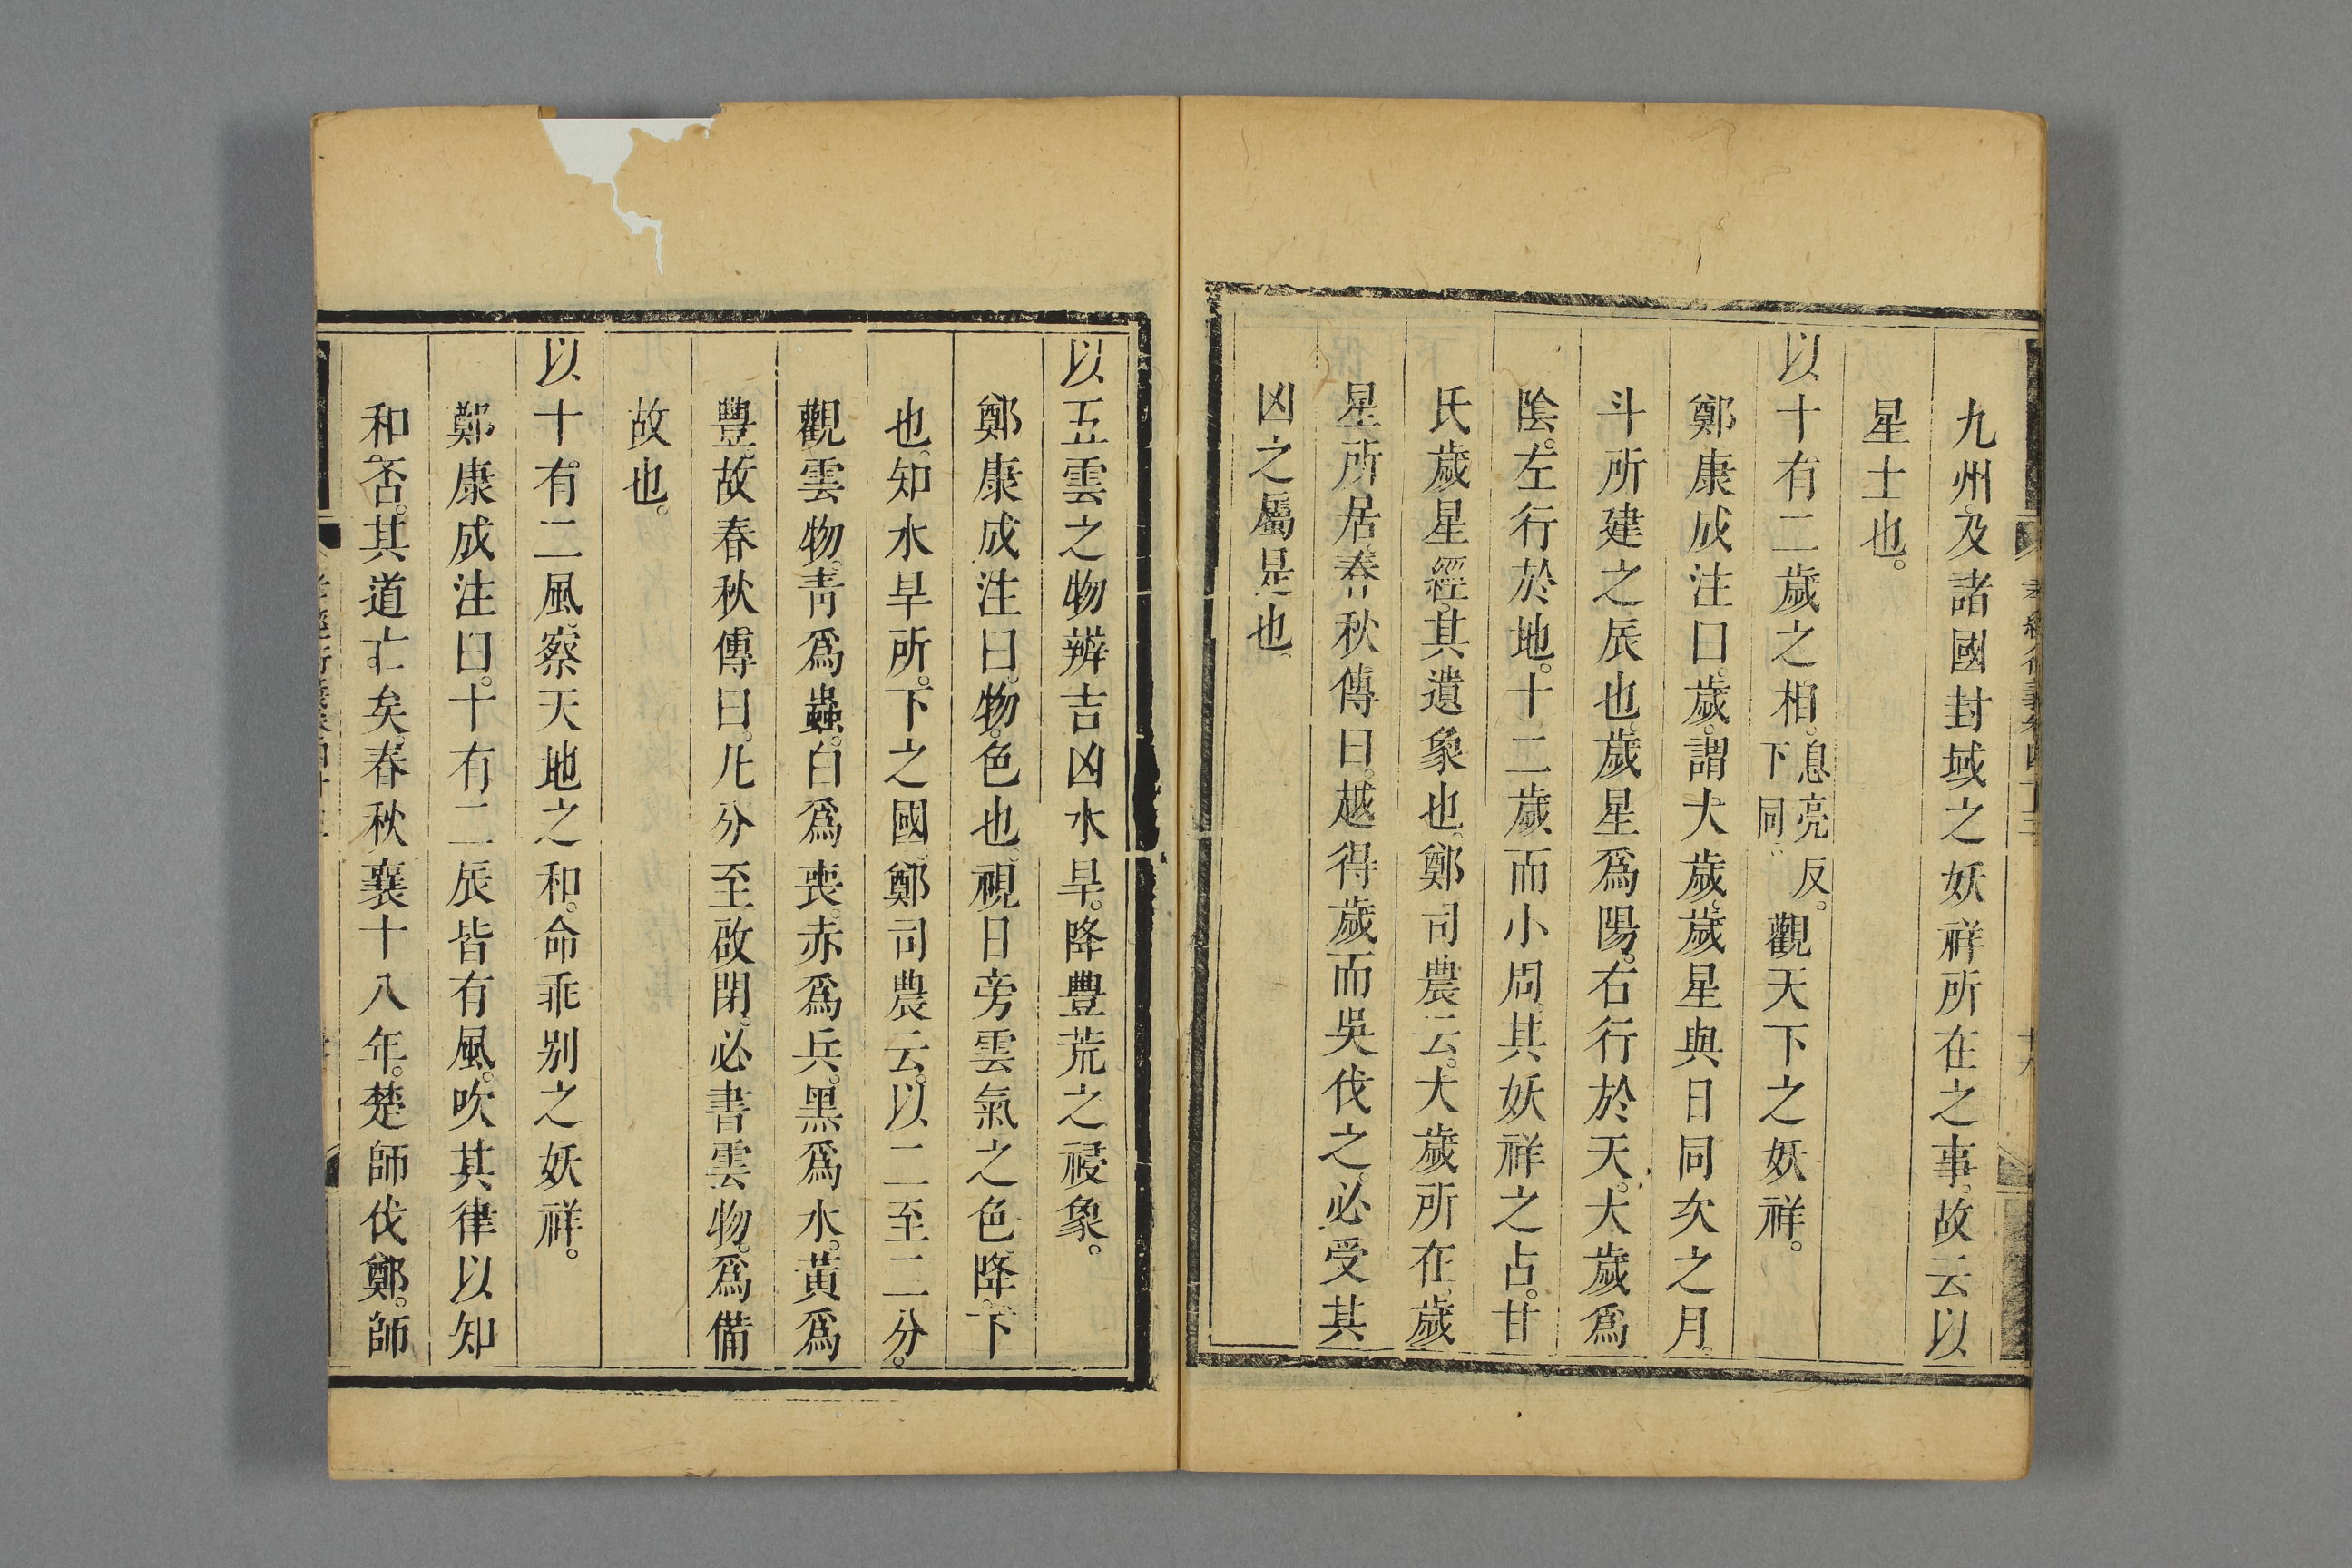 九州。及諸國封域之妖祥所在之事。故云以
星士也。
以十有二歲之相。息亮反。下同。觀天下之妖祥。
鄭康成注曰。歲。謂大歲。歲星與日同次之月。
斗所建之辰也。歲星爲陽。右行於天。大歲爲
陰。左行於地。十二歲而小周。其妖祥之占。甘
氏歲星經。其遺象也。鄭司農云。大歲所在。歲
星所居。春秋傳曰。越得歲而吳伐之。必受其
凶之屬是也。
以五雲之物辨吉凶水旱。降豐荒之祲象。
鄭康成注曰。物。色也。視日旁雲氣之色。降。下
也。知水旱所。下之國。鄭司農云。以二至二分。
觀雲物。靑爲蟲。白爲喪。赤爲兵。黑爲水。黃爲
豐。故春秋傳曰。凡分至啟閉。必書雲物。爲備
故也。
以十。有二風。察天地之和。命乖别之妖祥。
鄭康成注曰。十有二辰皆有風。吹其律以知
和。否。其道亡矣。春秋襄十八年。楚師伐鄭。師